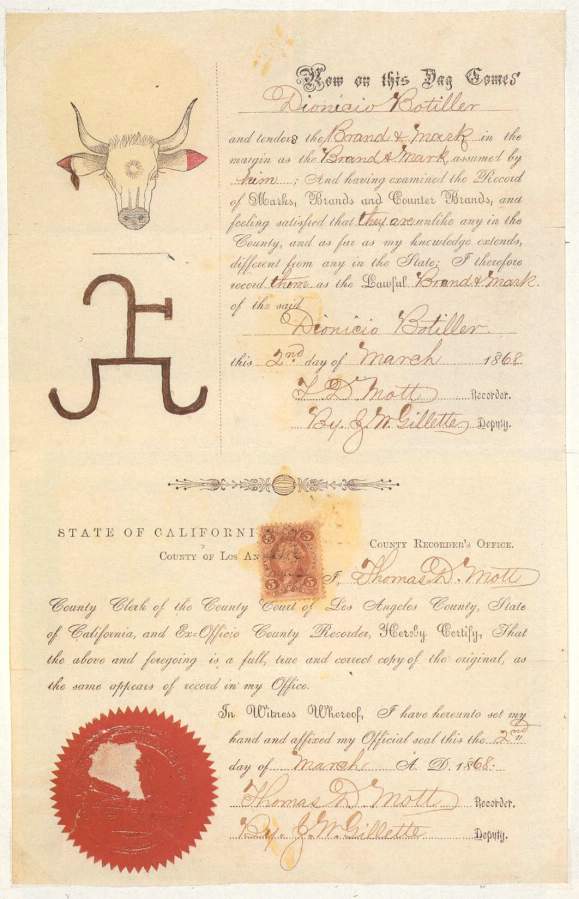 Now on this Day Comes
Dionicio Botiller
and tenders the Brand & Mark in the
margin as the Brand & Mark assumed by
him; And having examined the Record
of Marks, Brands and Counter Brands, and
feeling satisfied that they are unlike any in the
County, and as far as my knowledge extends,
different from any in the State; I therefore
record them as the Lawful Brand & Mark.
of the said
Dionicio Botiller.
this 2nd day of March 1868
T. D. Mott Recorder.
By J. W. Gillette Deputy.
STATE OF CALIFORNI
COUNTY OF LOS AN
COUNTY RECORDER'S OFFICE.
5 5
I, Thomas D. Mott
County Clerk of the County Court of Los Angeles County, State
of California, and Ex-Officio County Recorder, Hereby Certify, That
the above and foregoing is a full, true and correct copy of the original, as
the same appears of record in my Office.
In Witness Whereof, I have hereunto set my
hand and affixed my Official seal this the 2nd
day of March A. D. 1868.
Thomas D. Mott Recorder.
By. J. W. Gillette Deputy.